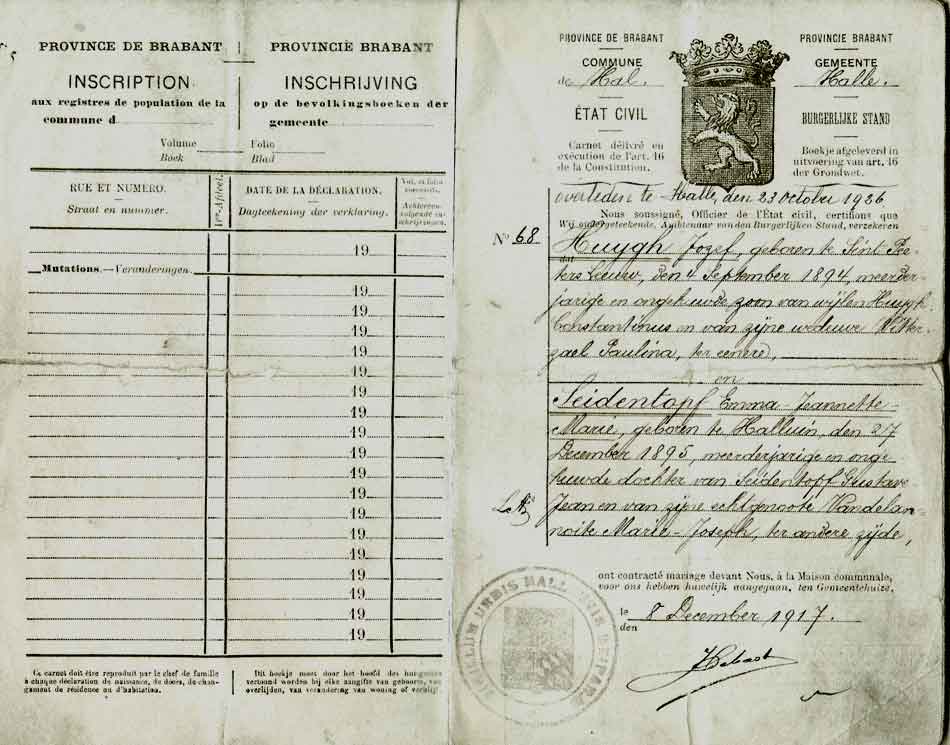 PROVINCE DE BRABANT
INSCRIPTION
aux registres de population de la
commune d
PROVINCIE BRABANT
INSCHRIJVING
op de bevolkingsboeken der
gemeente
Volume Folio
Boek Blad
RUE ET NUMÉRO.
Straat en nummer.
DATE DE LA DÉCLARATION.
Dagteekening der verklaring.
Vol. et folio
19
Mutations.—Veranderingen.
19
19
19
19
19
19
19
19
19
19
19
19
19
19
19
19
19
19
Ce carnet doit être reproduit par le chef de famille
à chaque déclaration de naissance, de décès, de chan-
gement de résidence ou d'habitation.
Dit boekje moet door het hoofd des
vertoond worden bij elke aangifte van geboorte, van
overlijden, van verandering van woning of verblijf
PROVINCE DE BRABANT
COMMUNE
de Hal.
ÉTAT CIVIL
Carnet délivré en
exécution de l'art. 16
de la Constitution.
PROVINCIE BRABANT
GEMEENTE
Halle.
BURGERLIJKE STAND
Boekje afgeleverd in
uitvoering van art. 16
der Grondwet.
overleden te Halle, den 23 October 1936
Nous soussigné, Officier de l'État civil, certifions que
Wij ondergeteekende, Ambtenaar van den Burgerlijken Stand, verzekeren
dat
No 68
Huygh Jozef, geboren te Sint Pee-
ters Leeuw, den 4 September 1894, meerder-
jarige en ongehuwde zoon van wijlen Huygh
Constantinus en van zijne weduwe Wetter-
zael Paulina, ter eenere,
en
Seidentopf Emma-Jeannette-
Marie, geboren te Halluin, den 27
December 1895, meerderjarige en onge
huwde dochter van Seidentopf Gustave
Jean en van zijne echtgenoote Vandelan-
noite Marie-Joseph, ter andere zijde,
ont contracté mariage devant Nous, à la Maison communale,
voor ons hebben huwelijk aangegaan, ten Gemeentehuize,
le
den
8 December 1917.